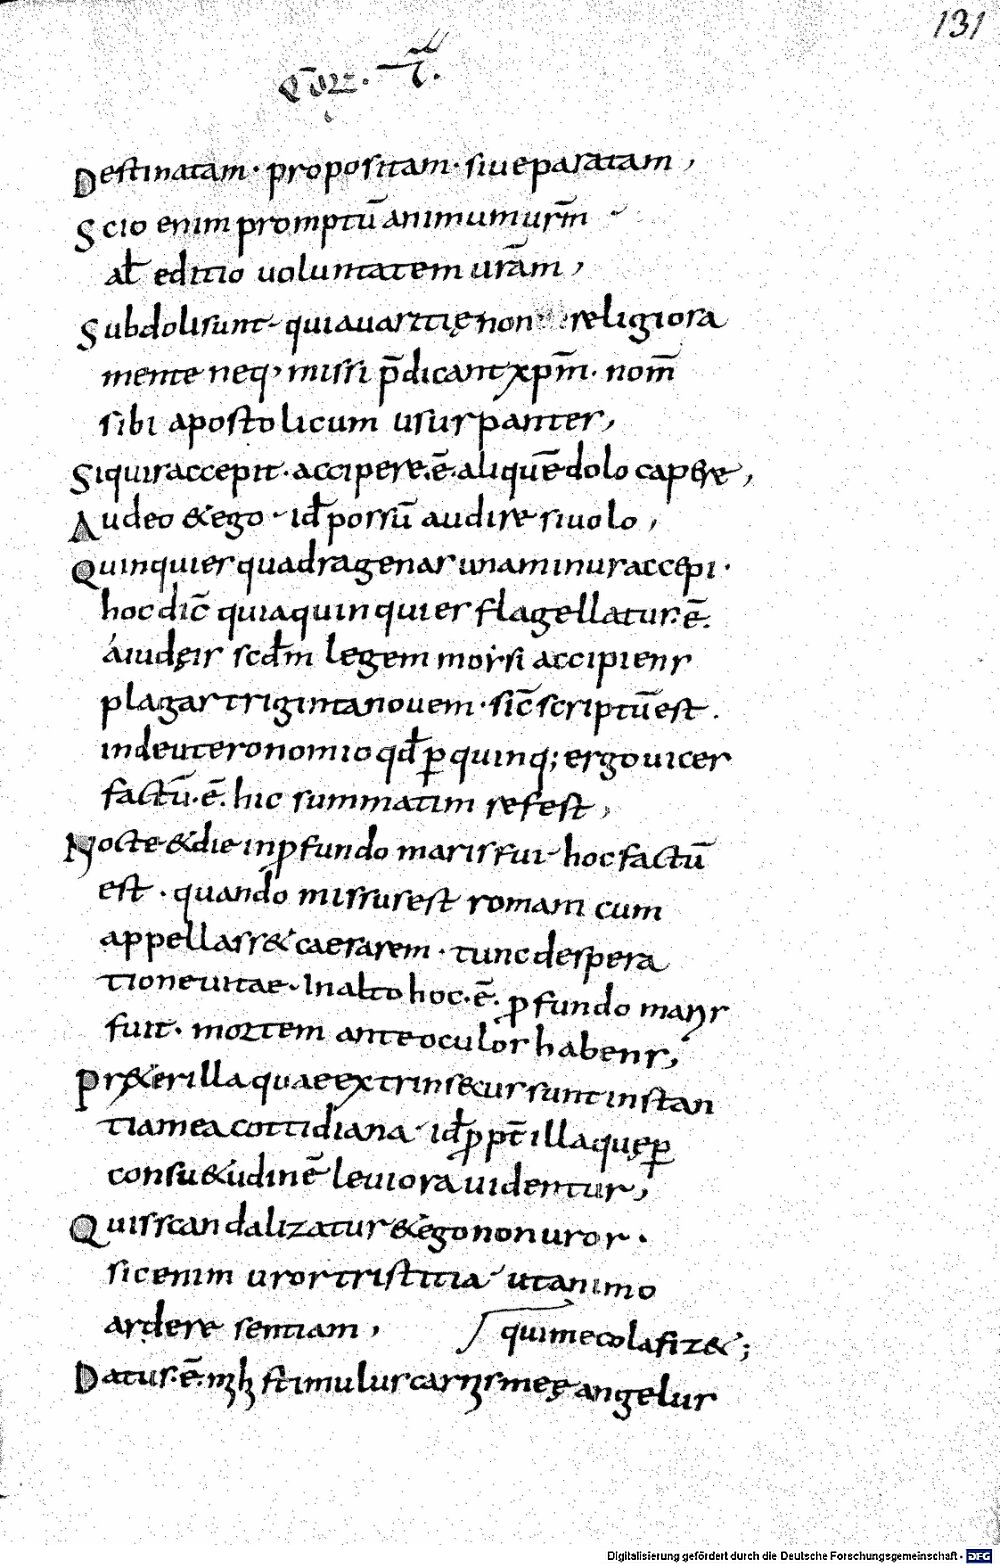 131
Destinatam · propositam · siue paratam ,
Scio enim promptū animum ur̄m
al̄ editio uoluntatem urām ,
Subdoli sunt · qui auaritię non religiosa
mente neq; missi p̄dicant xpm̄ · nom̄
sibi apostolicum usurpanter ,
Siquis accepit · accipere · ē · aliquē dolo cap&re ,
Audeo & ego · id̄ possū audire si uolo ,
Quinquies quadragenas una minus accepi ·
hoc dic̄ quia quinquies flagellatus · ē ·
a iudęis scd̄m legem moysi accipiens
plagas triginta nouem · sic̄ scriptū est ·
in deuteronomio qd̄ ꝑ quinq; ergo uices
factū · ē · hic summatim refest ,
Nocte & die in ꝓfundo maris fui · hoc factū
est · quando missus est romam cum
appellass& caesarem · tunc despera
tione uitae · In alto hoc · ē · ꝓfundo maris
fuit · mortem ante oculos habens ,
Pr&er illa quae extrinsecus sunt instan
tia mea cottidiana · id̄ ꝓpt̄ illa quę ꝑ
consu&udinē leuiora uidentur ,
Quis scandalizatur & ego non uror ·
sic enim uror tristitia · ut animo
ardere sentiam , qui me colafiz& ;
Datus · ē · mihi stimulus carnis meę angelus
Digitalisierung gefördert durch die Deutsche Forschungsgemeinschaft - DFG